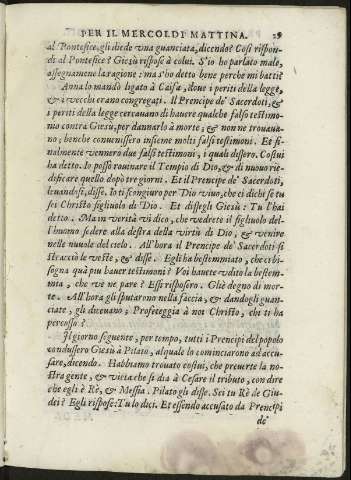 PER IL MERCOLDI MATTINA. 29
al Pontefice, gli diede vna guanciata, dicendo? Così rispon-
di al Pontefice? Giesù rispose à colui. S'io ho parlato male,
assegnamene la ragione: ma s'ho detto bene perche mi batti?
Anna lo mandò ligato à Caifa, doue i periti della legge,
& i vecchi erano congregati. Il Prencipe de' Sacerdoti, &
i periti della legge cercauano di hauere qualche falso testimo-
nio contra Giesù, per dannarlo à morte; & non ne trouaua-
no; benche conuenissero insieme molti falsi testimoni. Et fi-
nalmente vennero due falsi testimoni, i quali dissero. Costui
ha detto. Io posso rouinare il Tempio di Dio, & di nuouo rie-
dificare quello dopò tre giorni. Et il Prencipe de' Sacerdoti,
leuandosi, disse. Io ti scongiuro per Dio viuo, che ci dichi se tu
sei Christo figliuolo di Dio. Et disse gli Giesù: Tu l'hai
detto. Ma in verità vi dico, che vedrete il figliuolo del-
l'huomo sedere alla destra della virtù di Dio, & venire
nelle nuuole del cielo. All'hora il Prencipe de' Sacerdoti si
stracciò le veste, & disse. Egli ha bestemmiato, che ci bi-
sogna quà piu hauer testimoni? Voi hauete vdito la bestem-
mia, che ve ne pare? Essi risposero. Gliè degno di mor-
te. All'hora gli sputarono nella faccia, & dandogli guan-
ciate, gli diceuano; Profeteggia à noi Christo, chi ti ha
percosso?
Il giorno seguente, per tempo, tutti i Prencipi del popolo
condussero Giesù à Pilato, al quale lo cominciarono ad accu-
sare, dicendo. Habbiamo trouato costui, che peruerte la no-
stra gente, & vieta che si dia à Cesare il tributo, con dire
che egli è Rè, & Messia. Pilato gli disse. Sei tu Rè de Giu-
dei? Egli rispose: Tu lo dici. Et essendo accusato da Prencipi
de'